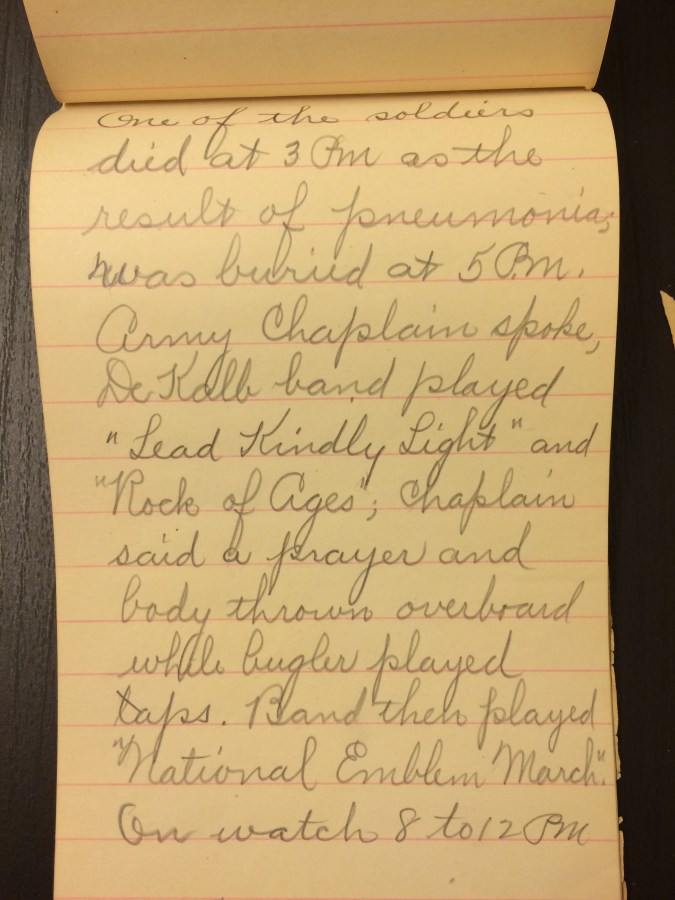 One of the soldiers
died at 3 PM as the
result of pneumonia;
was buried at 5 P.M.
Army Chaplain spoke,
De Kalb band played
"Lead Kindly Light" and
"Rock of Ages"; Chaplain
said a prayer and
body thrown overboard
while bugler played
taps. Band then played
"National Emblem March".
On watch 8 to 12 PM